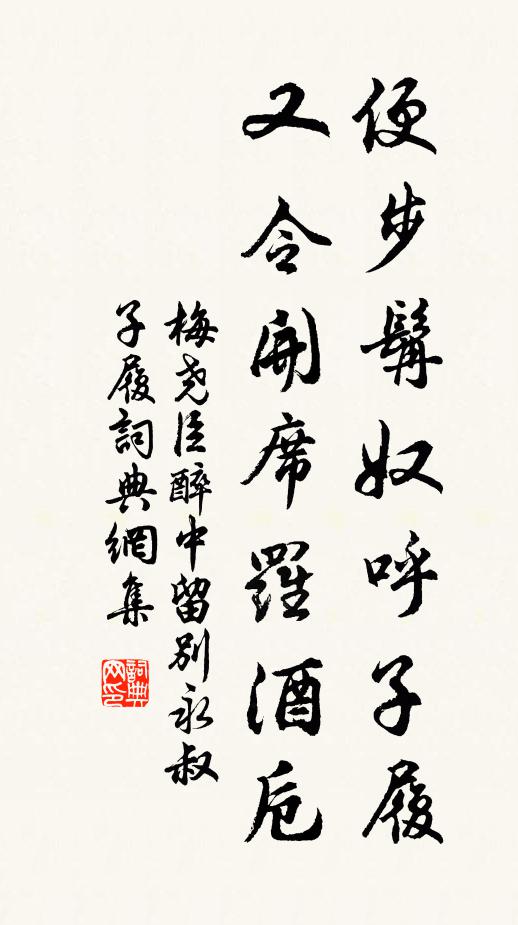 便步髯奴呼子履
又令開席羅酒卮
梅尧臣醉中留别永叔
子履詞典網集
詞典网印